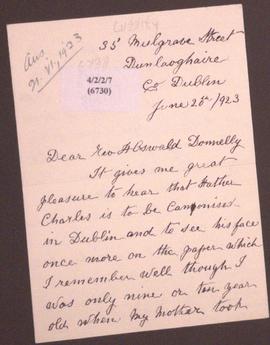 Ans
21.VI.1923
4/2/2/7
(6730)
35 Mulgrave Street
Dunlaoghaire
Co Dublin
June 20th/1923
Dear Rev Oswald Donnelly
It gives me great
pleasure to hear that Father
Charles is to be Canonised
in Dublin and to see his face
once more on the paper which
I remember well though I
was only nine or ten year
old when My Mother took